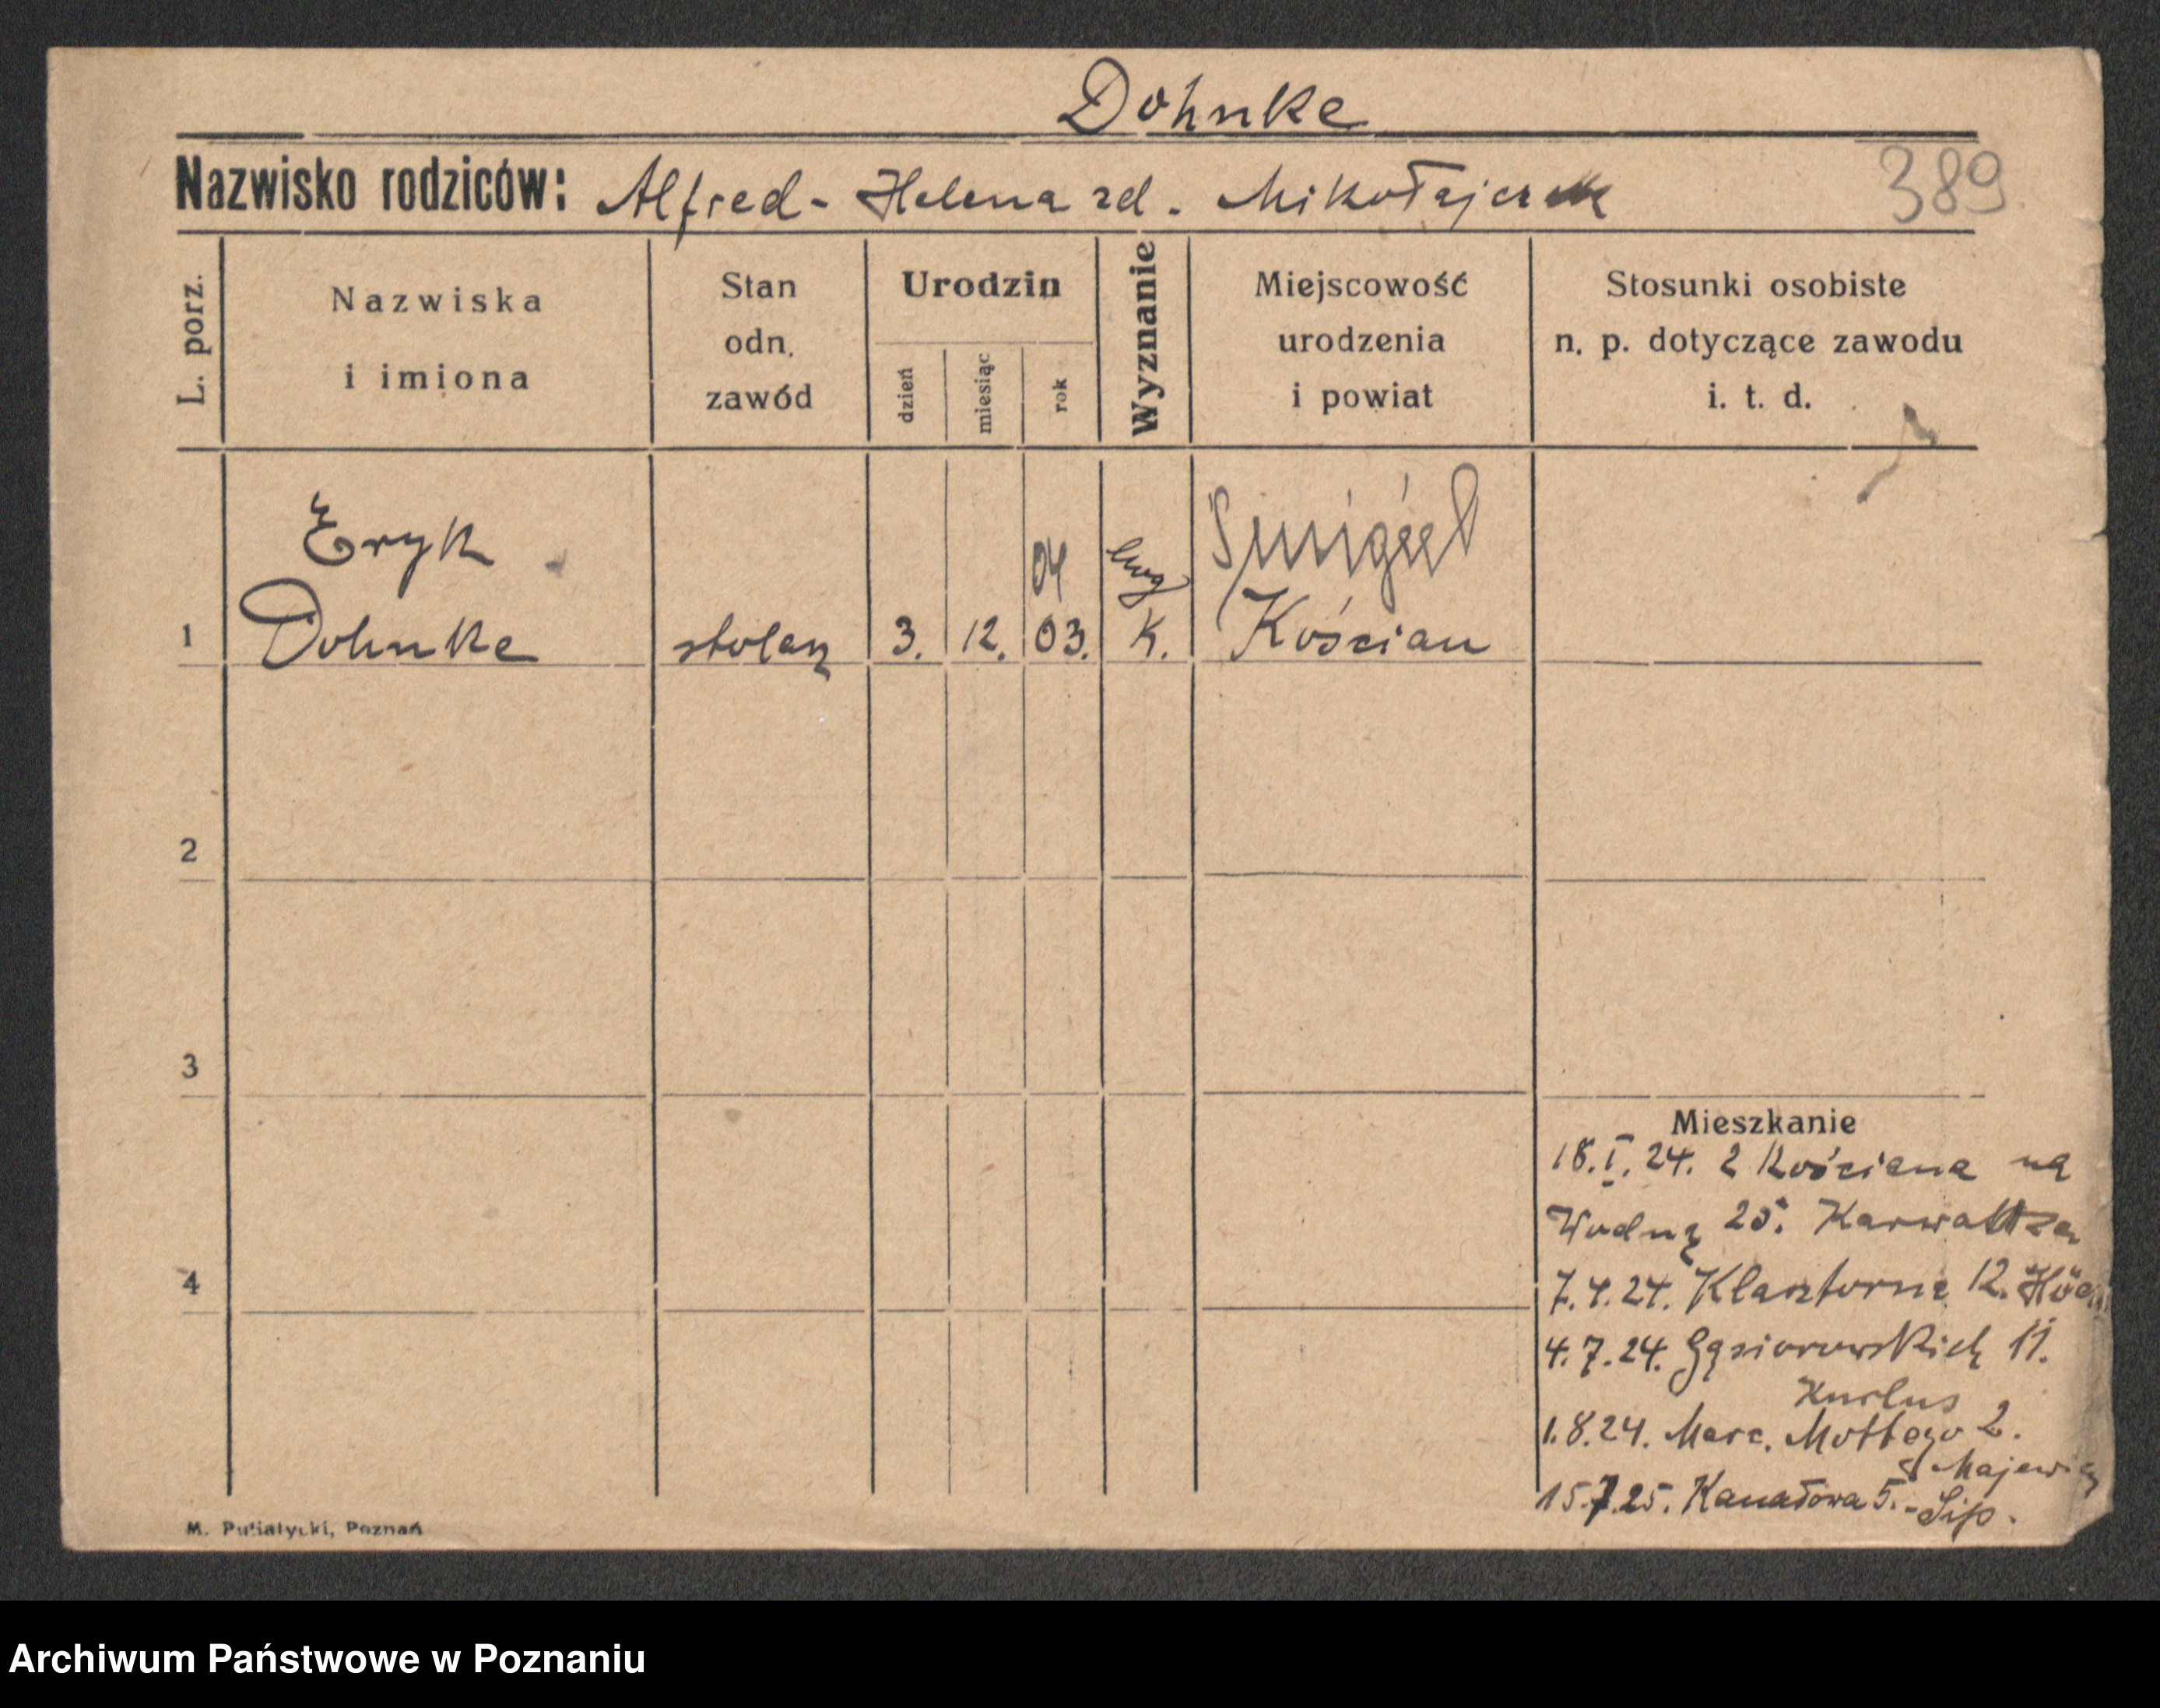 Dohnke
Nazwisko rodziców: Alfred - Helena zd. Mikołajczak
389
L. porz.
Nazwiska
i imiona
Stan
odn.
zawód
Urodzin
dzień
miesiąc
rok
Wyznanie
Miejscowość
urodzenia
i powiat
Stosunki osobiste
n. p. dotyczące zawodu
i. t. d.
Eryk
04
Śmigiel
1 Dohnke stolarz 3. 12. 03. K. Kościan
2
3
4
Mieszkanie
18.I.24. z Kościana na
Wodną 25.
7.4.24. Klasztorna 12.
4.7.24. Gąsiorowskich 11.
Kurlus
1.8.24. Marc. Mottego 2.
15.7.25. Kanałowa 5. - Lip.
M. Putiatycki, Poznań
Archiwum Państwowe w Poznaniu